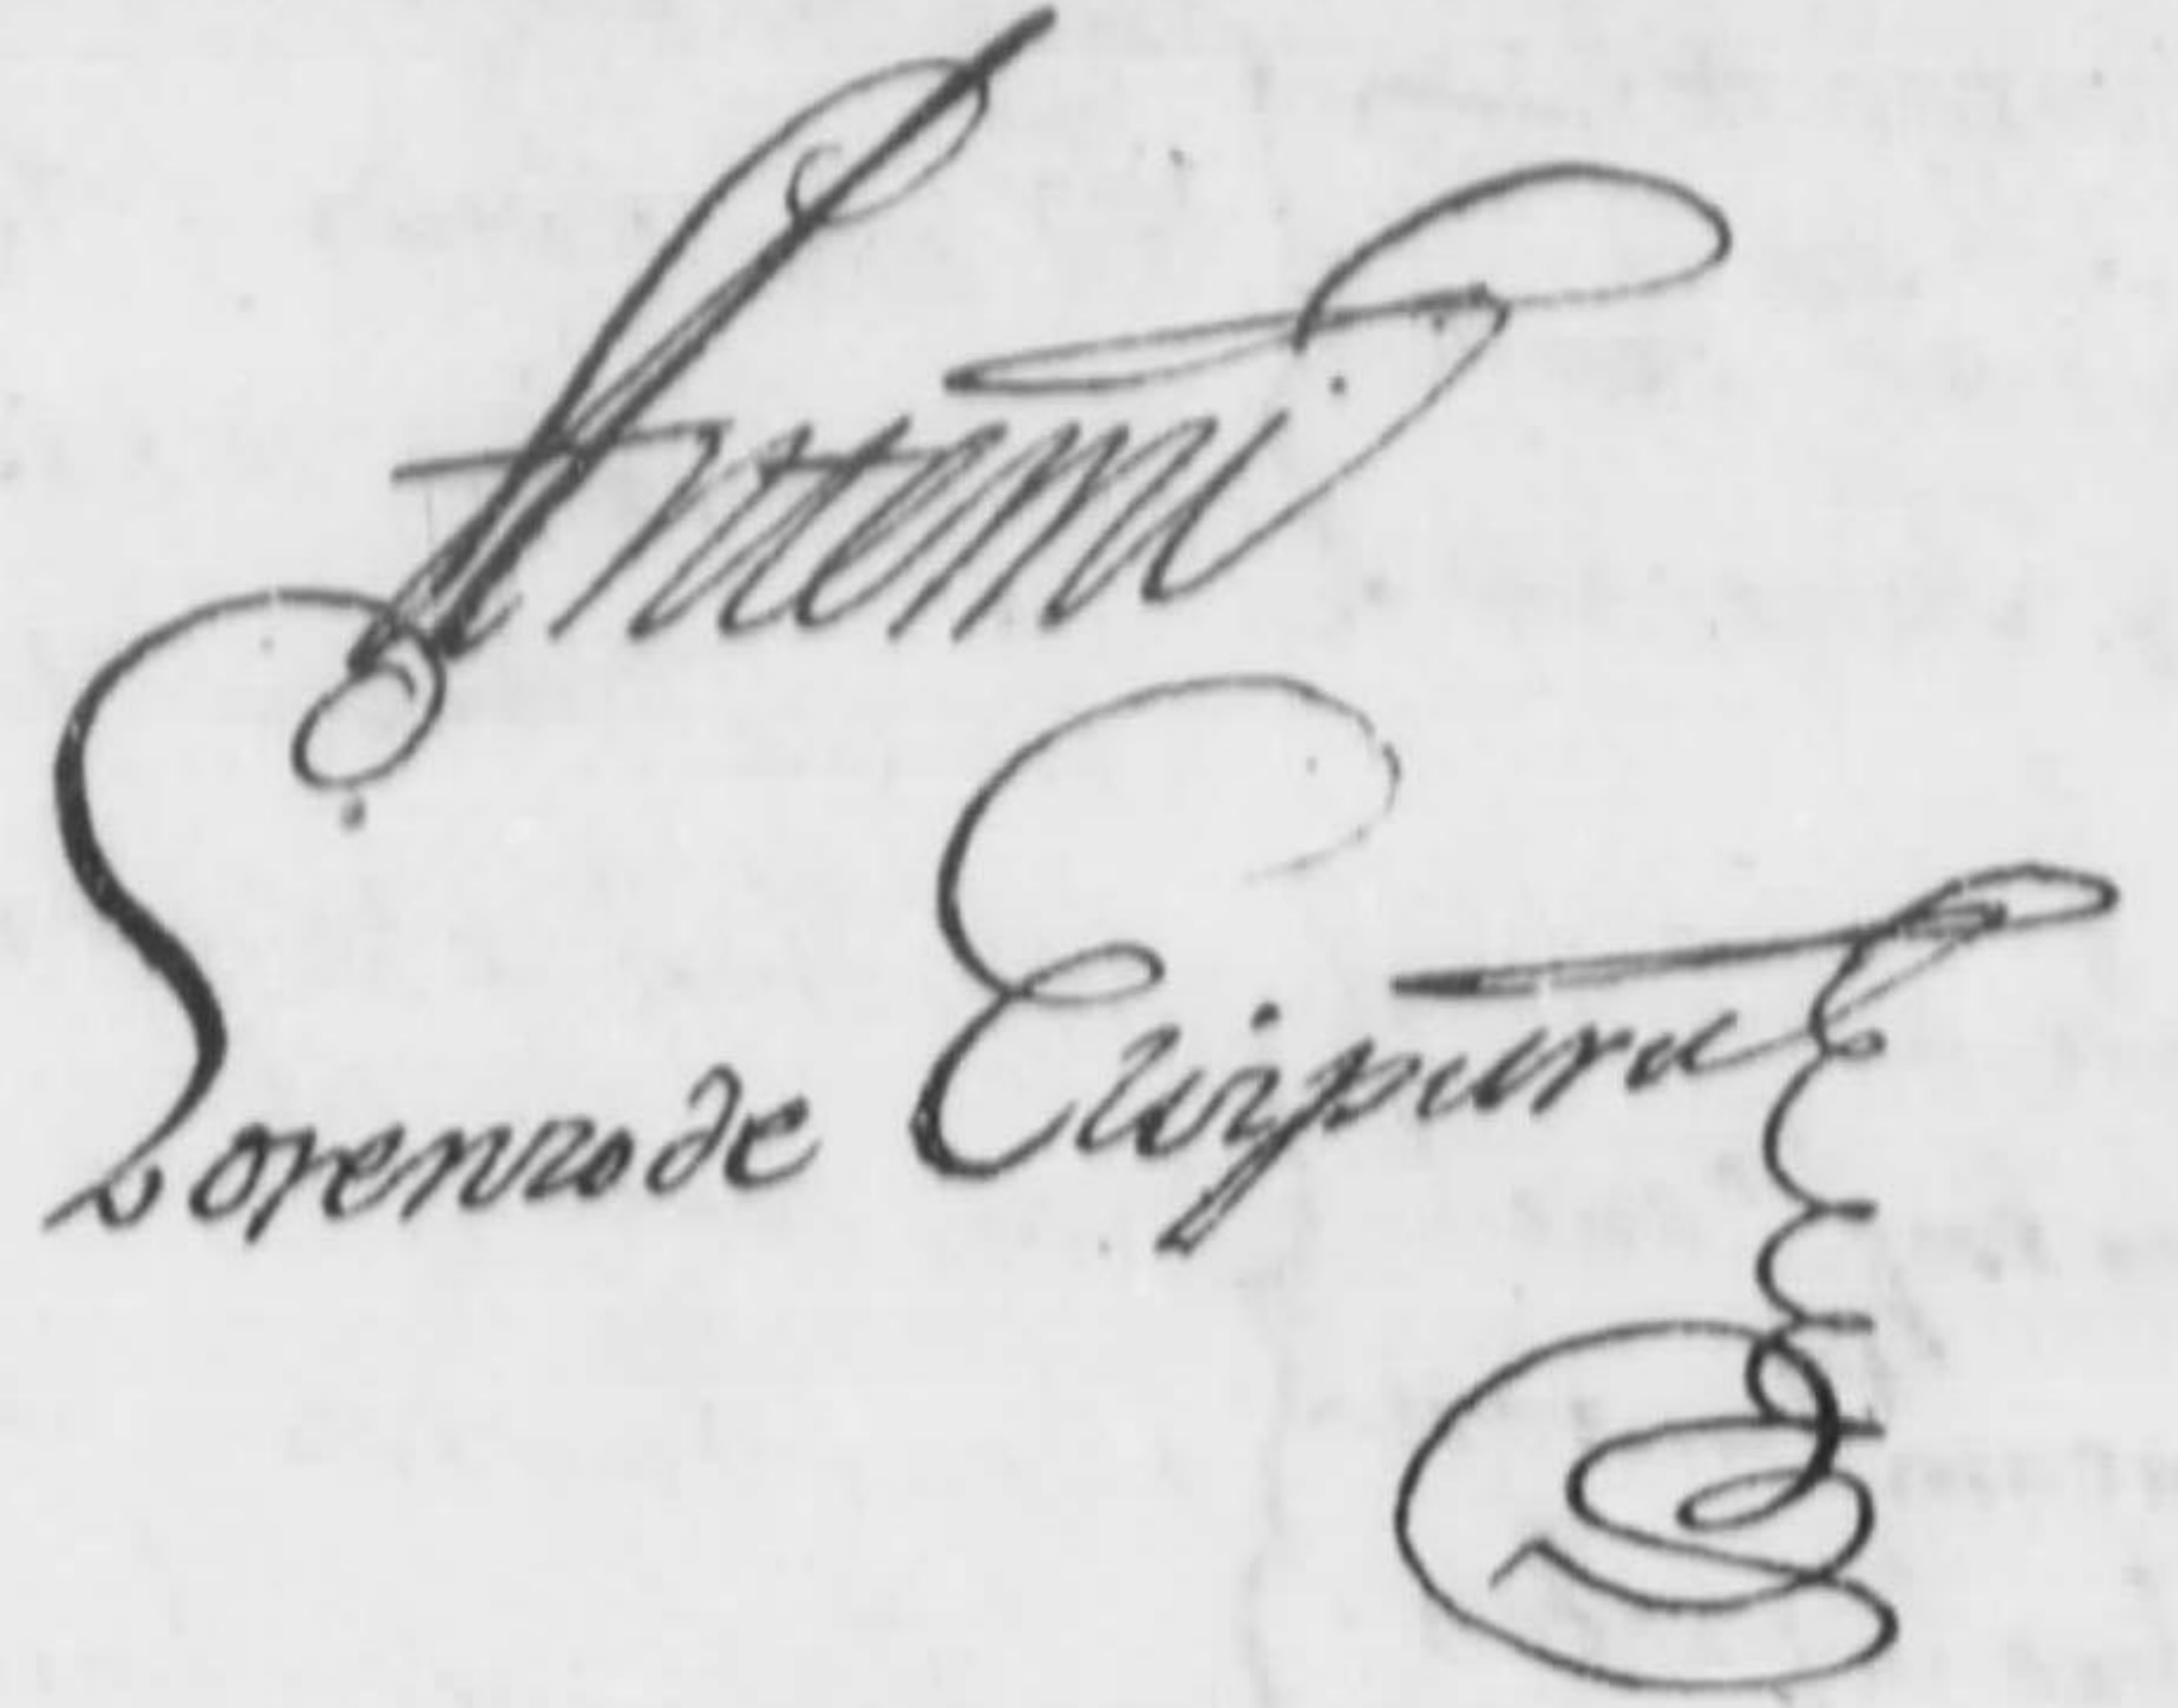 Antemi
Lorenzo de Eleizpuru